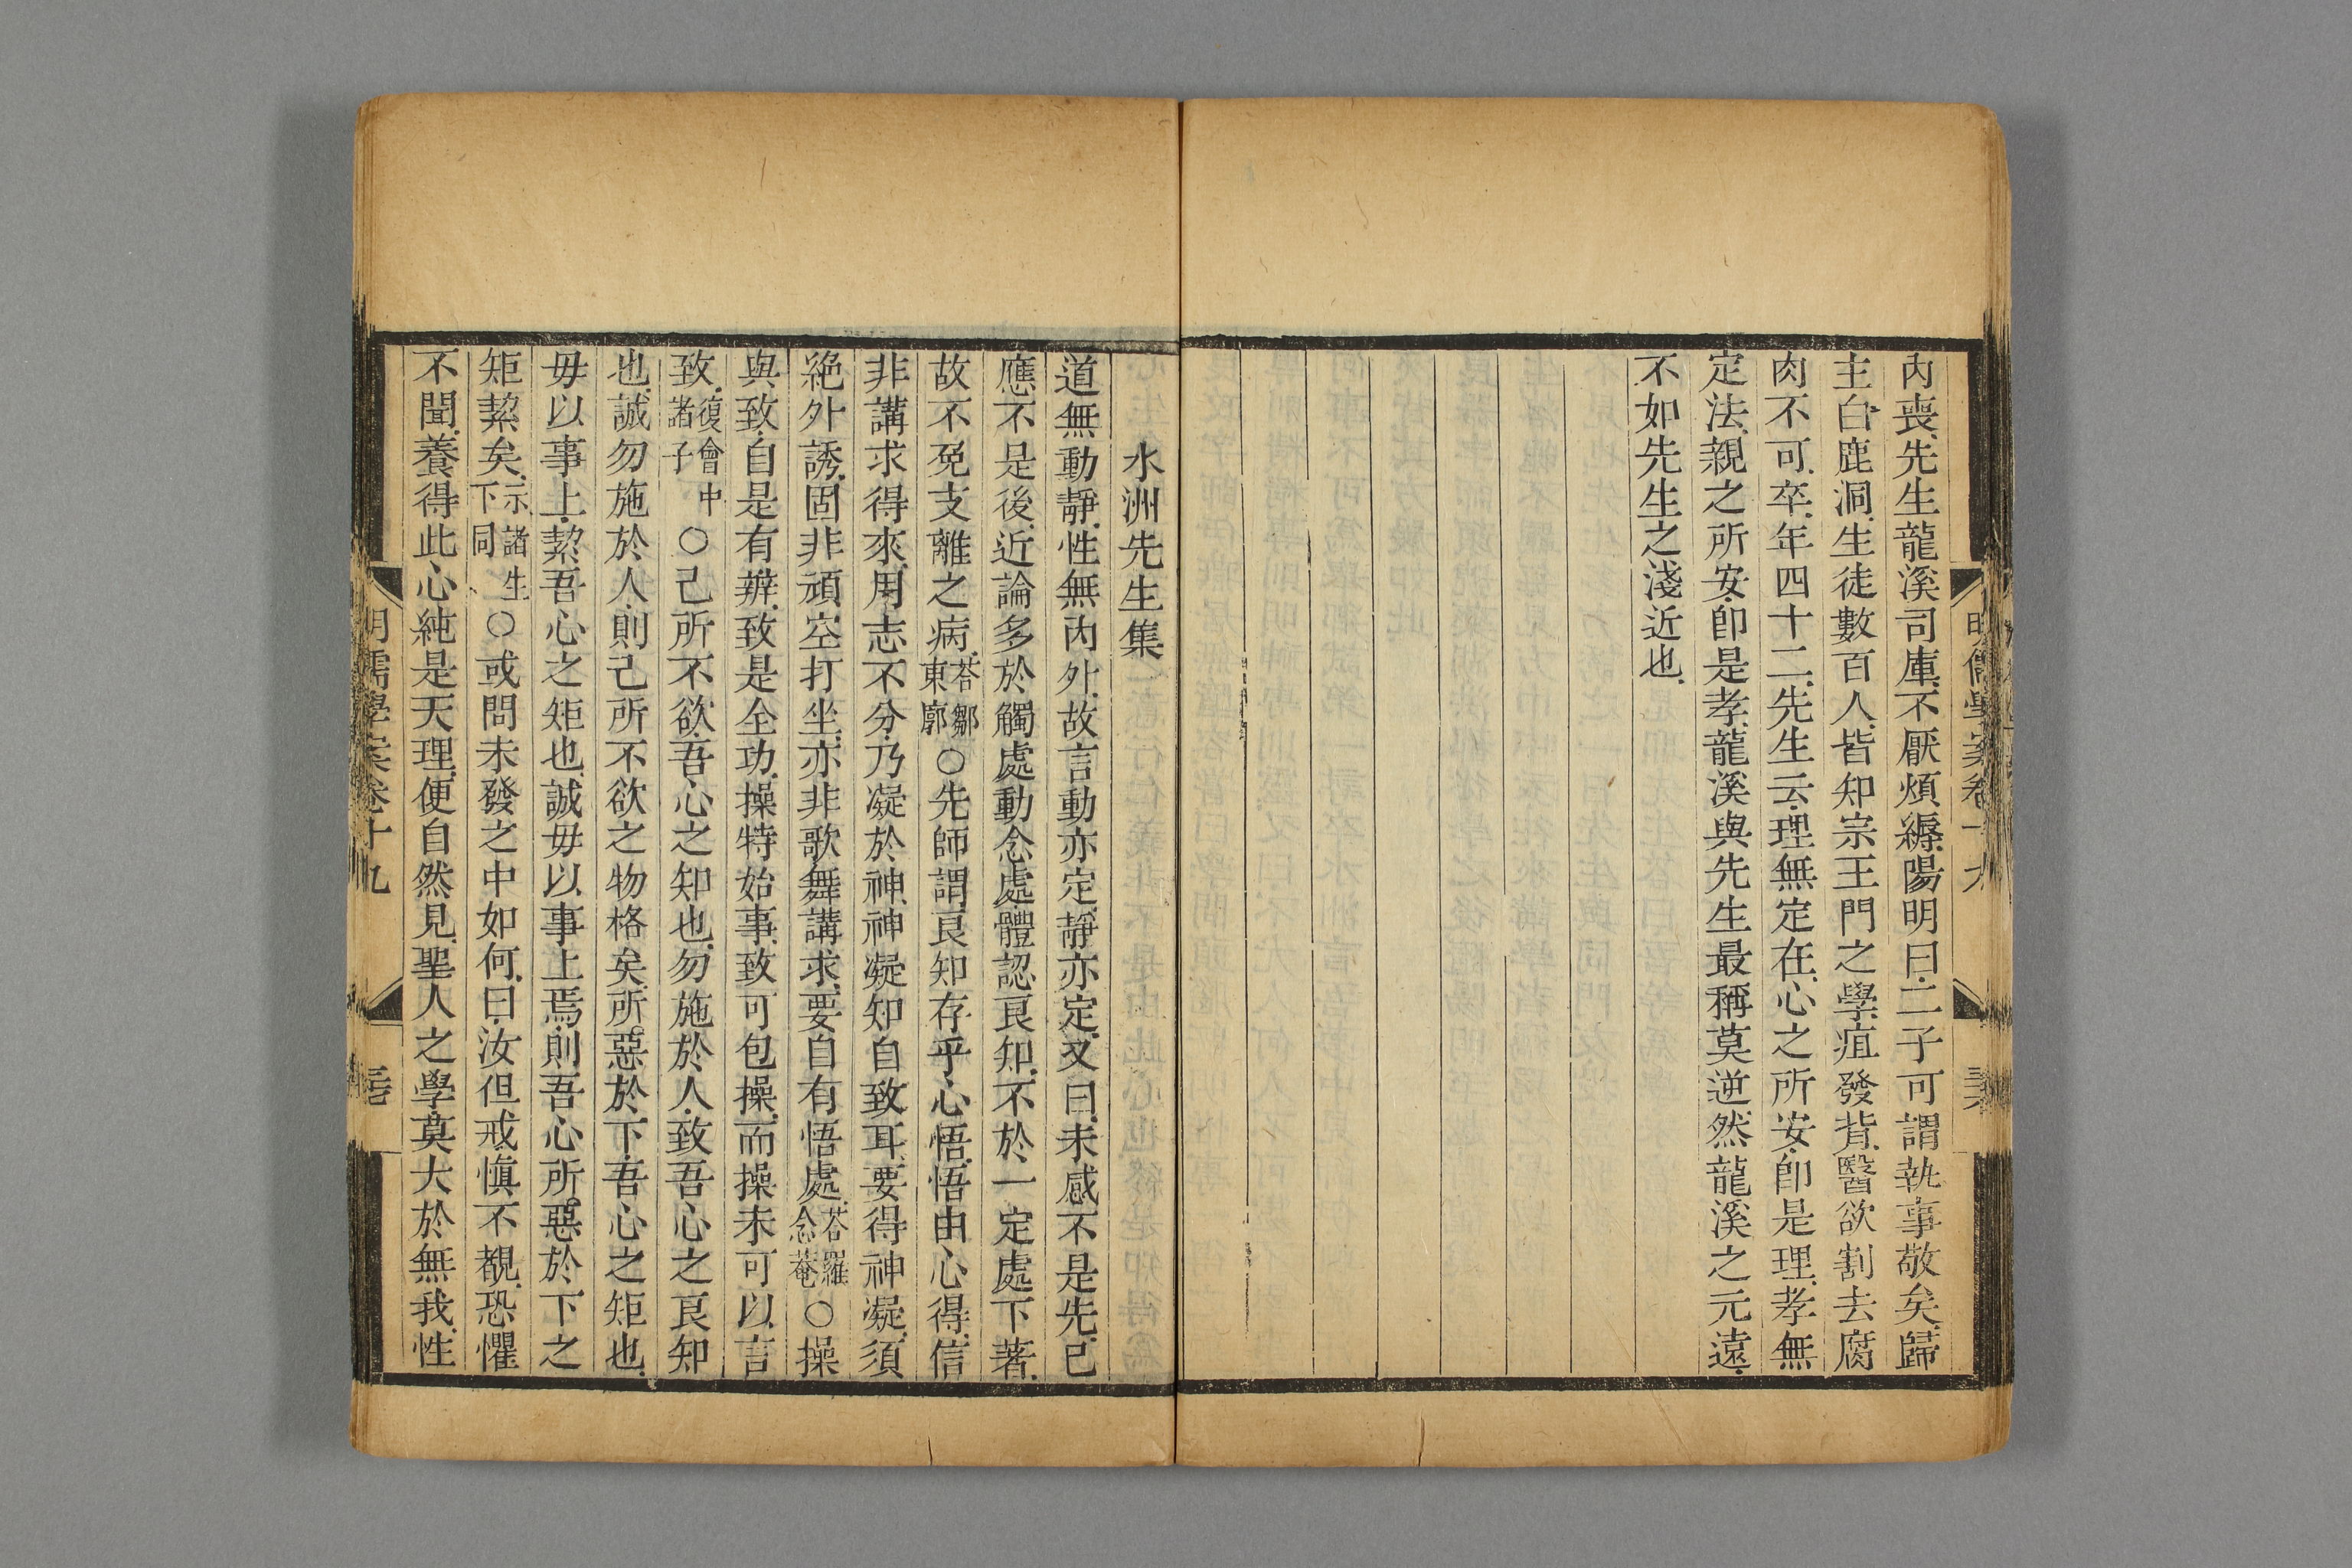 內喪先生龍溪司庫不厭煩縟陽明曰二子可謂執事敬矣歸
主白鹿洞生徒數百人皆知宗王門之學疽發背醫欲割去腐
肉不可卒年四十二先生云理無定在心之所安卽是理孝無
定法親之所安卽是孝龍溪與先生最稱莫逆然龍溪之元遠
不如先生之淺近也
水洲先生集
道無動靜性無內外故言動亦定靜亦定又曰未感不是先已
應不是後近論多於觸處動念處體認良知不於一定處下著
故不免支離之病答鄒東廓○先師謂良知存乎心悟悟由心得信
非講求得來用志不分乃凝於神神凝知自致耳要得神凝須
絕外誘固非頑空打坐亦非歌舞講求要自有悟處答羅念菴○操
與致自是有辨致是全功操特始事致可包操而操未可以言
致復會中諸子○己所不欲吾心之知也勿施於人致吾心之良知
也誠勿施於人則己所不欲之物格矣所惡於下吾心之矩也
毋以事上絜吾心之矩也誠毋以事上焉則吾心所惡於下之
矩絜矣示諸生下同○或問未發之中如何曰汝但戒愼不覩恐懼
不聞養得此心純是天理便自然見聖人之學莫大於無我性
明儒學案卷十九